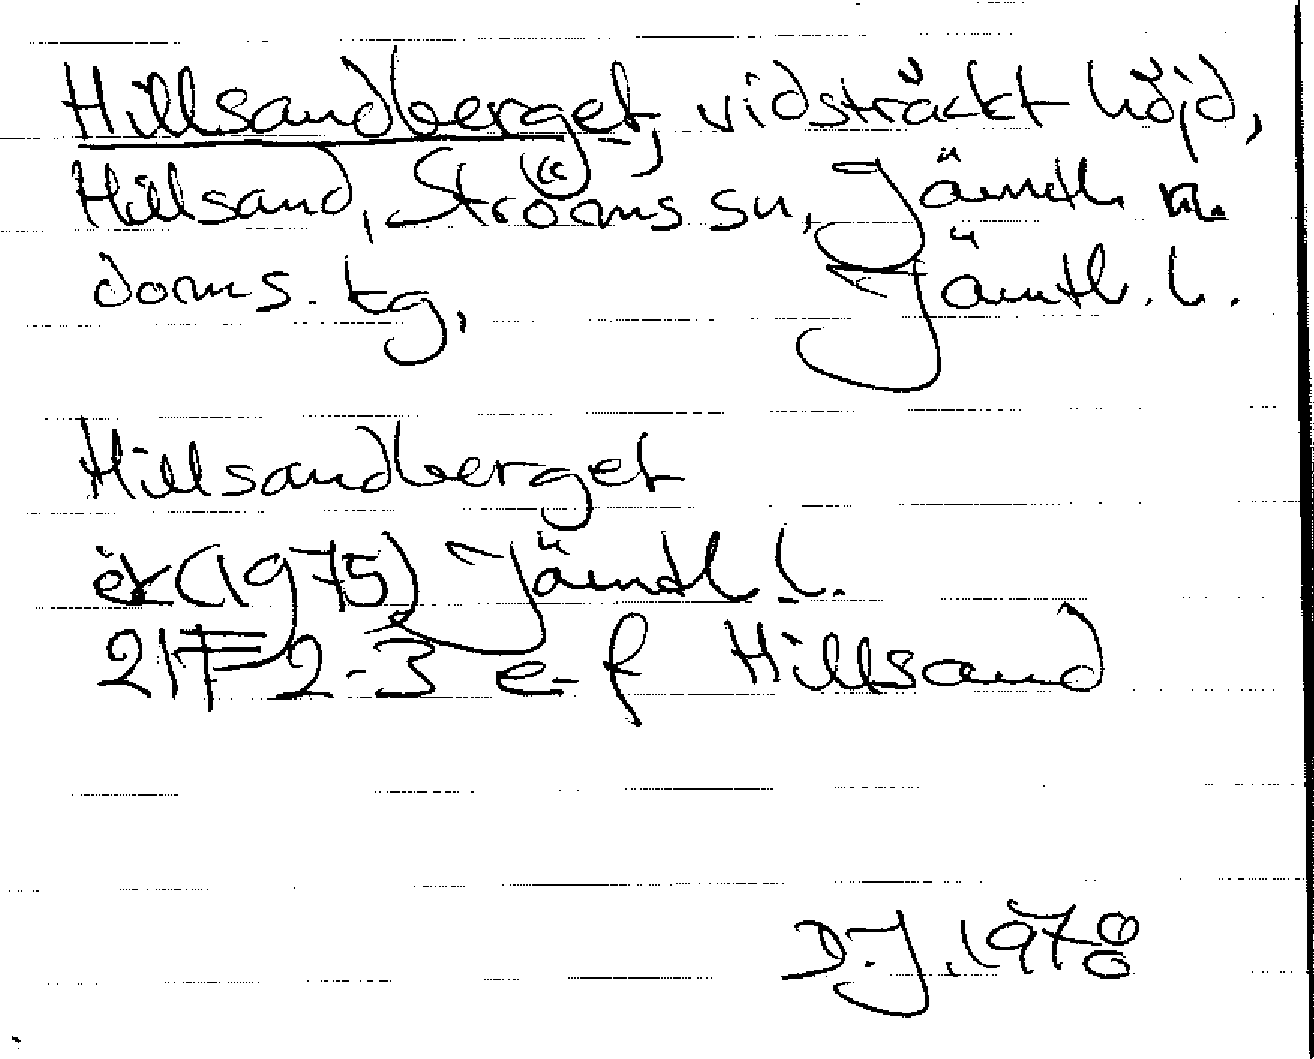 Hillsandberget, vidsträckt höjd,
Hillsand, Ströms sn, Jämtl. n.
doms. tg, Jämtl. l.
Hillsandberget
ek (1975) Jämtl l.
21F 2-3 e-f Hillsand
D.J. 1978